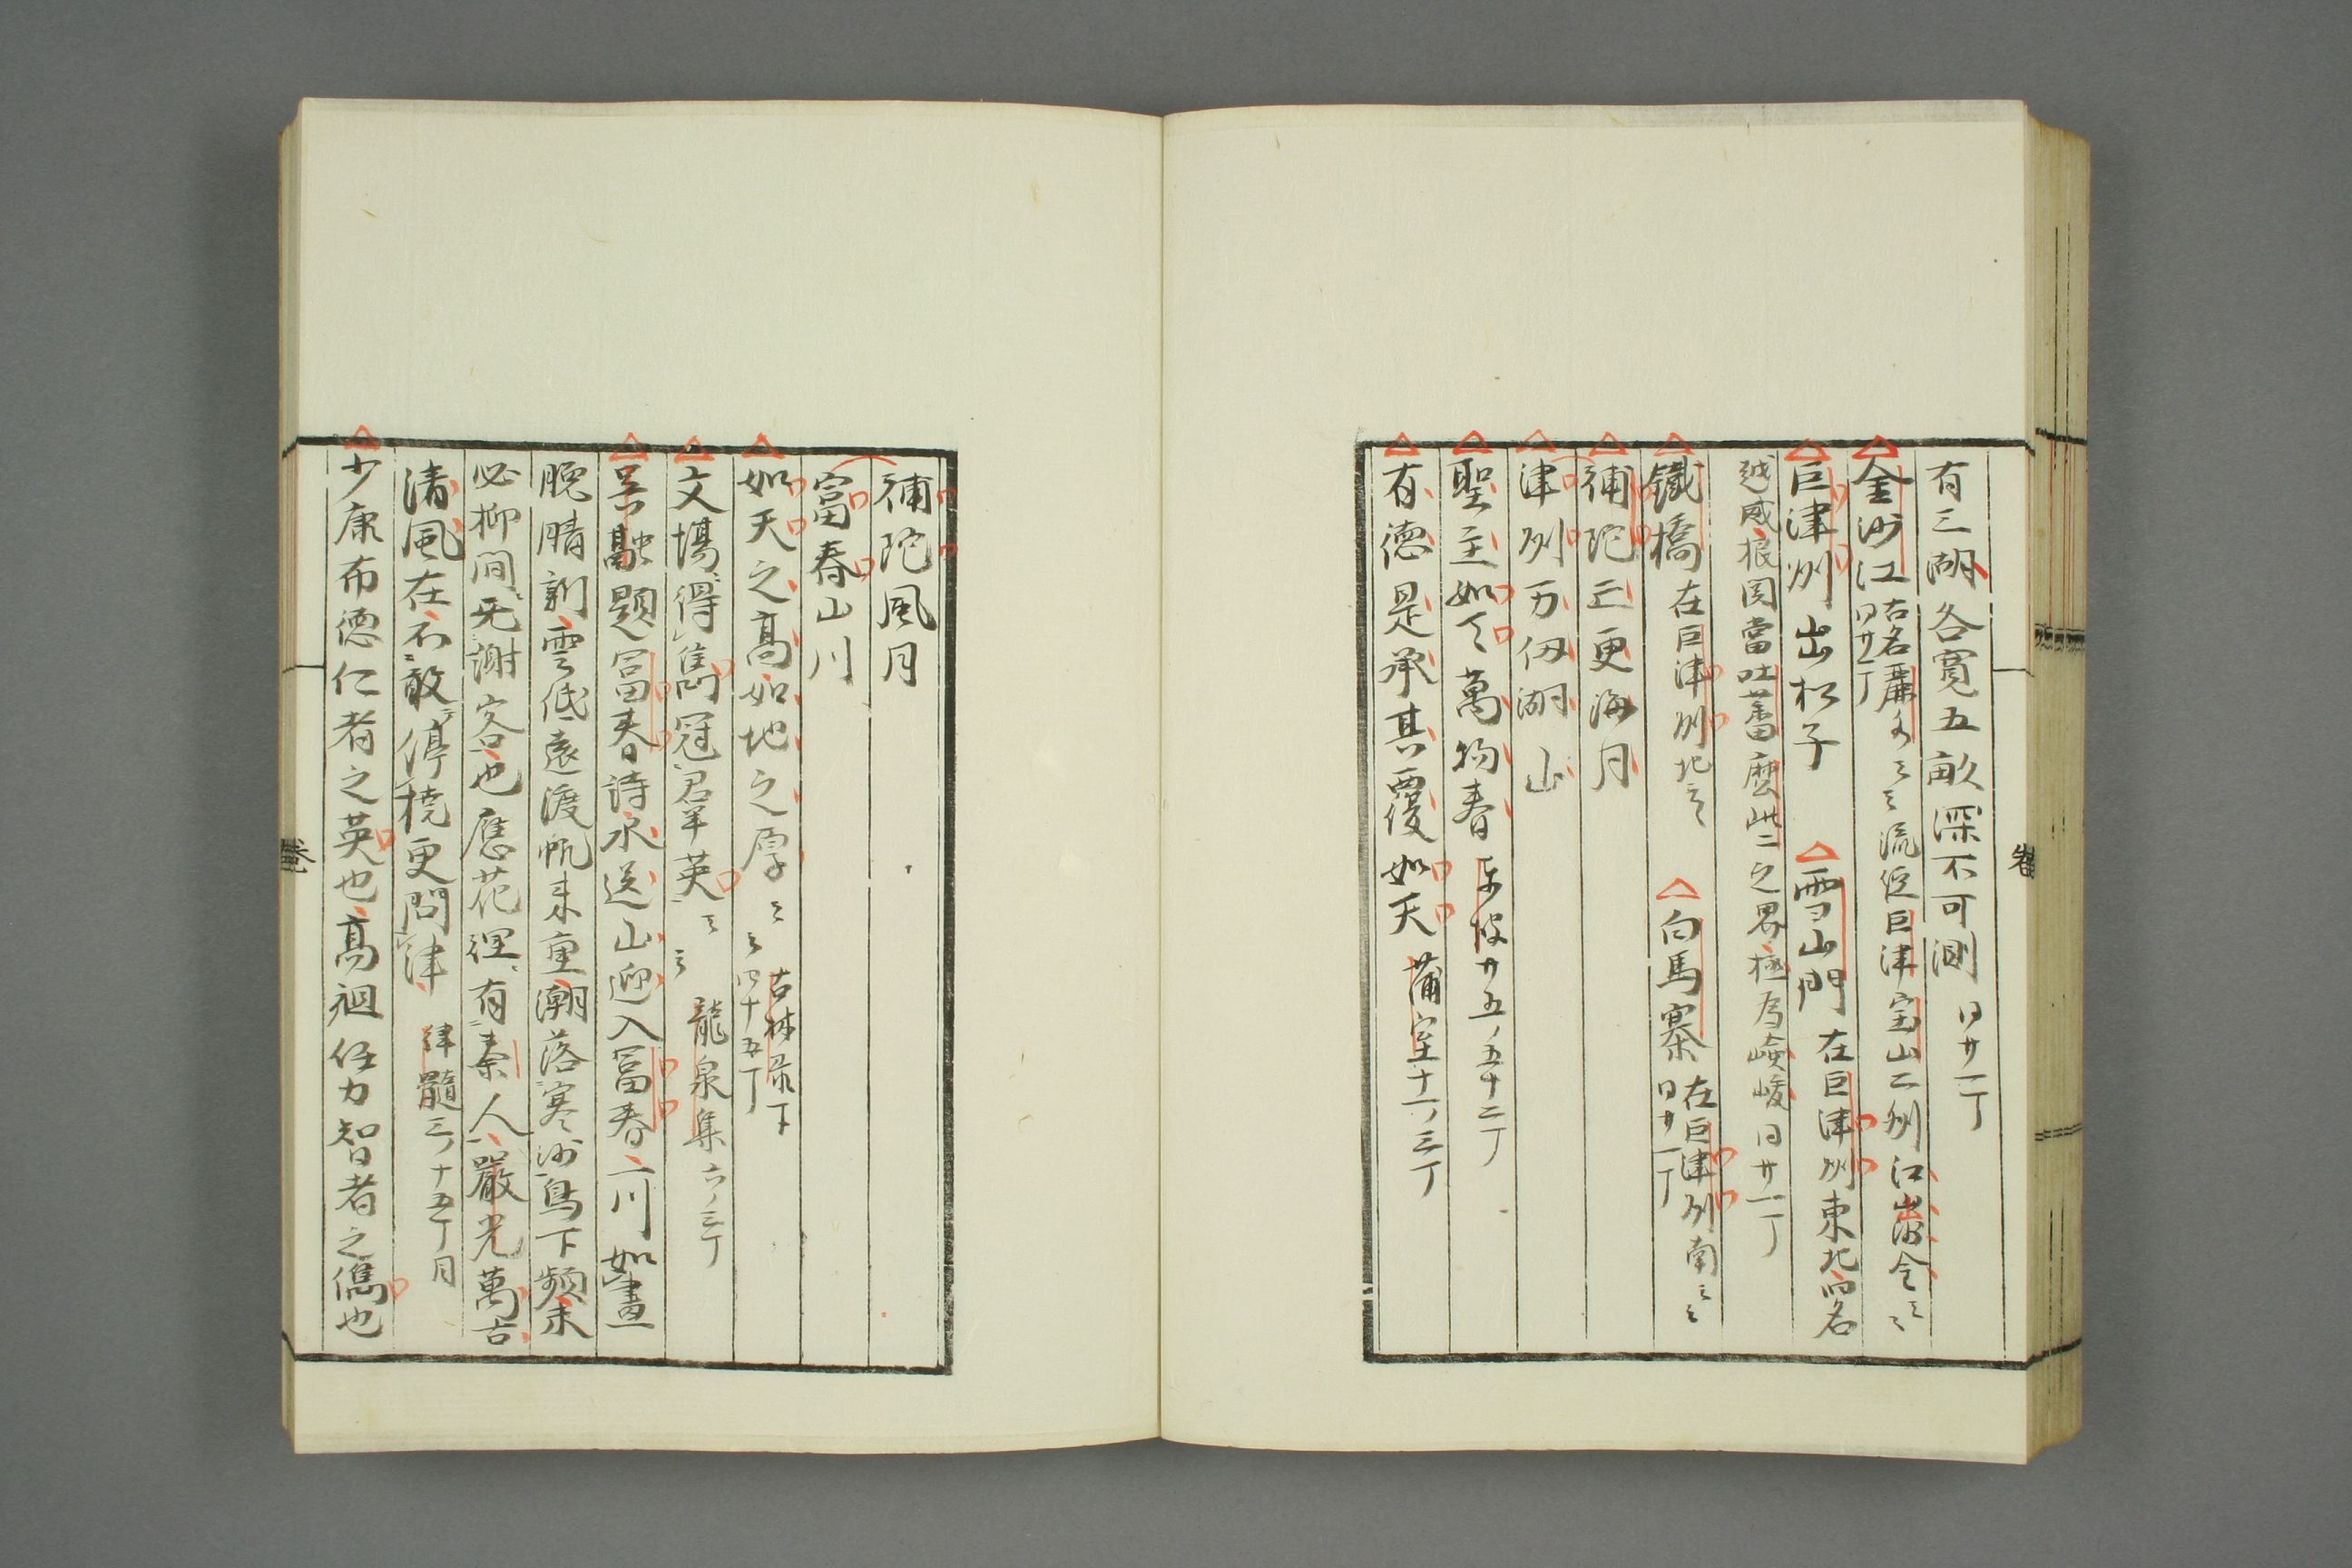 有三湖各寛五畝深不可測 同廿一丁
金沙江 古名麗水云云流経巨津宝山二州江出沙金云云
同廿一丁
巨津州 出松子 雪山門 在巨津州東北四名
越威根関當吐蕃麼些二之界極為嶮峻同廿一丁
鐵橋 在巨津州北云 白馬寨 在巨津州南云云
同廿一丁
補陀三更海月
津州万仭湖山
聖主如天萬物春 東坡廿五ノ五十二丁
有徳是承其覆如天 蒲室十一ノ三丁
補陀風月
富春山川
如天之高如地之厚云云 古林录下
四十五丁
文場得雋冠君羊英云云 龍泉集六ノ三丁
吴融題冨春詩水送山迎入冨春一川如畫
晩晴新雲低遠渡帆来重潮落寒沙鳥下頻未
必柳間无謝客也應花裡有秦人嚴光萬古
清風在不敢停橈更問津 律髓三ノ十五丁月
少康布徳仁者之英也高祖任力智者之儁也